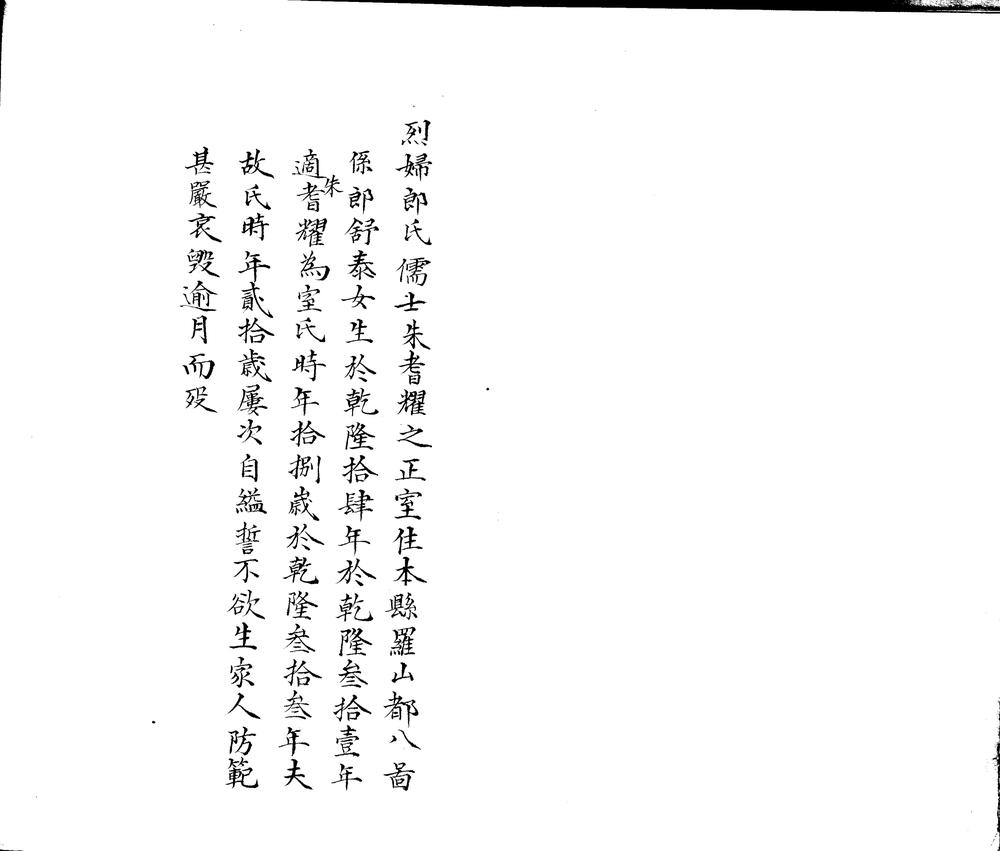 烈婦郎氏儒士朱耆耀之正室住本縣羅山都八啚
係郎舒泰女生於乾隆拾肆年於乾隆叁拾壹年
適朱耆耀為室氏時年拾捌歲於乾隆叁拾叁年夫
故氏時年貳拾歲屢次自縊誓不欲生家人防範
甚嚴哀毀逾月而歿